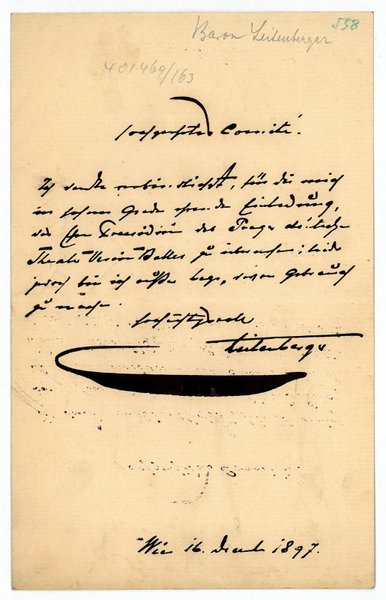 558
Baron Leitenberger
401469/163
hochgeehrtes Comité!
Ich danke verbindlichst, für die mich
im hohem Grade ehrende Einladung,
das Ehren Praesidium des Prager deutschen
Theater Verein Balles zu übernehmen; leider
jedoch bin ich außer Lage, davon Gebrauch
zu machen.
hochachtungsvoll
Leitenberger
Wien 16. Decemb 1897.